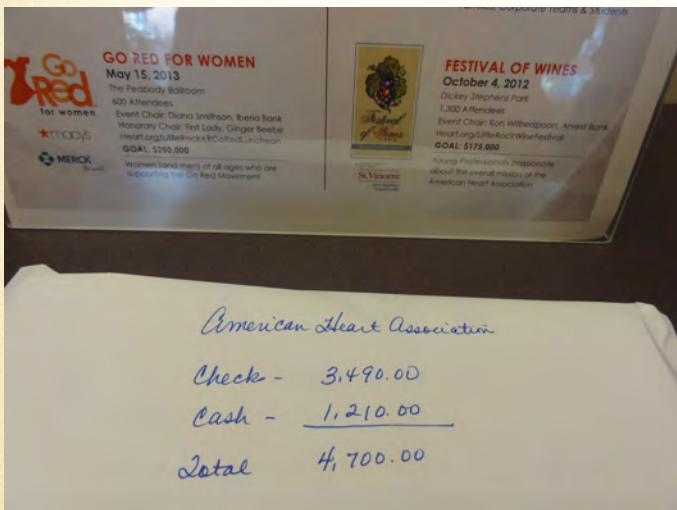 Families, Corporate Teams & Students
Go
Red
for women
macy's
MERCK
GO RED FOR WOMEN
May 15, 2013
The Peabody Ballroom
600 Attendees
Event Chair: Diana Smithson, Iberia Bank
Honorary Chair: First Lady, Ginger Beebe
Heart.org/LittleRockARGoRedLuncheon
GOAL: $250,000
Women (and men) of all ages who are
supporting the Go Red Movement
Festival
of Wines
St. Vincent
FESTIVAL OF WINES
October 4, 2012
Dickey Stephens Park
1,300 Attendees
Event Chair: Ron Witherspoon, Arvest Bank
Heart.org/LittleRockWineFestival
GOAL: $175,000
Young Professionals passionate
about the overall mission of the
American Heart Association
American Heart Association
Check - 3,490.00
Cash - 1,210.00
Total 4,700.00